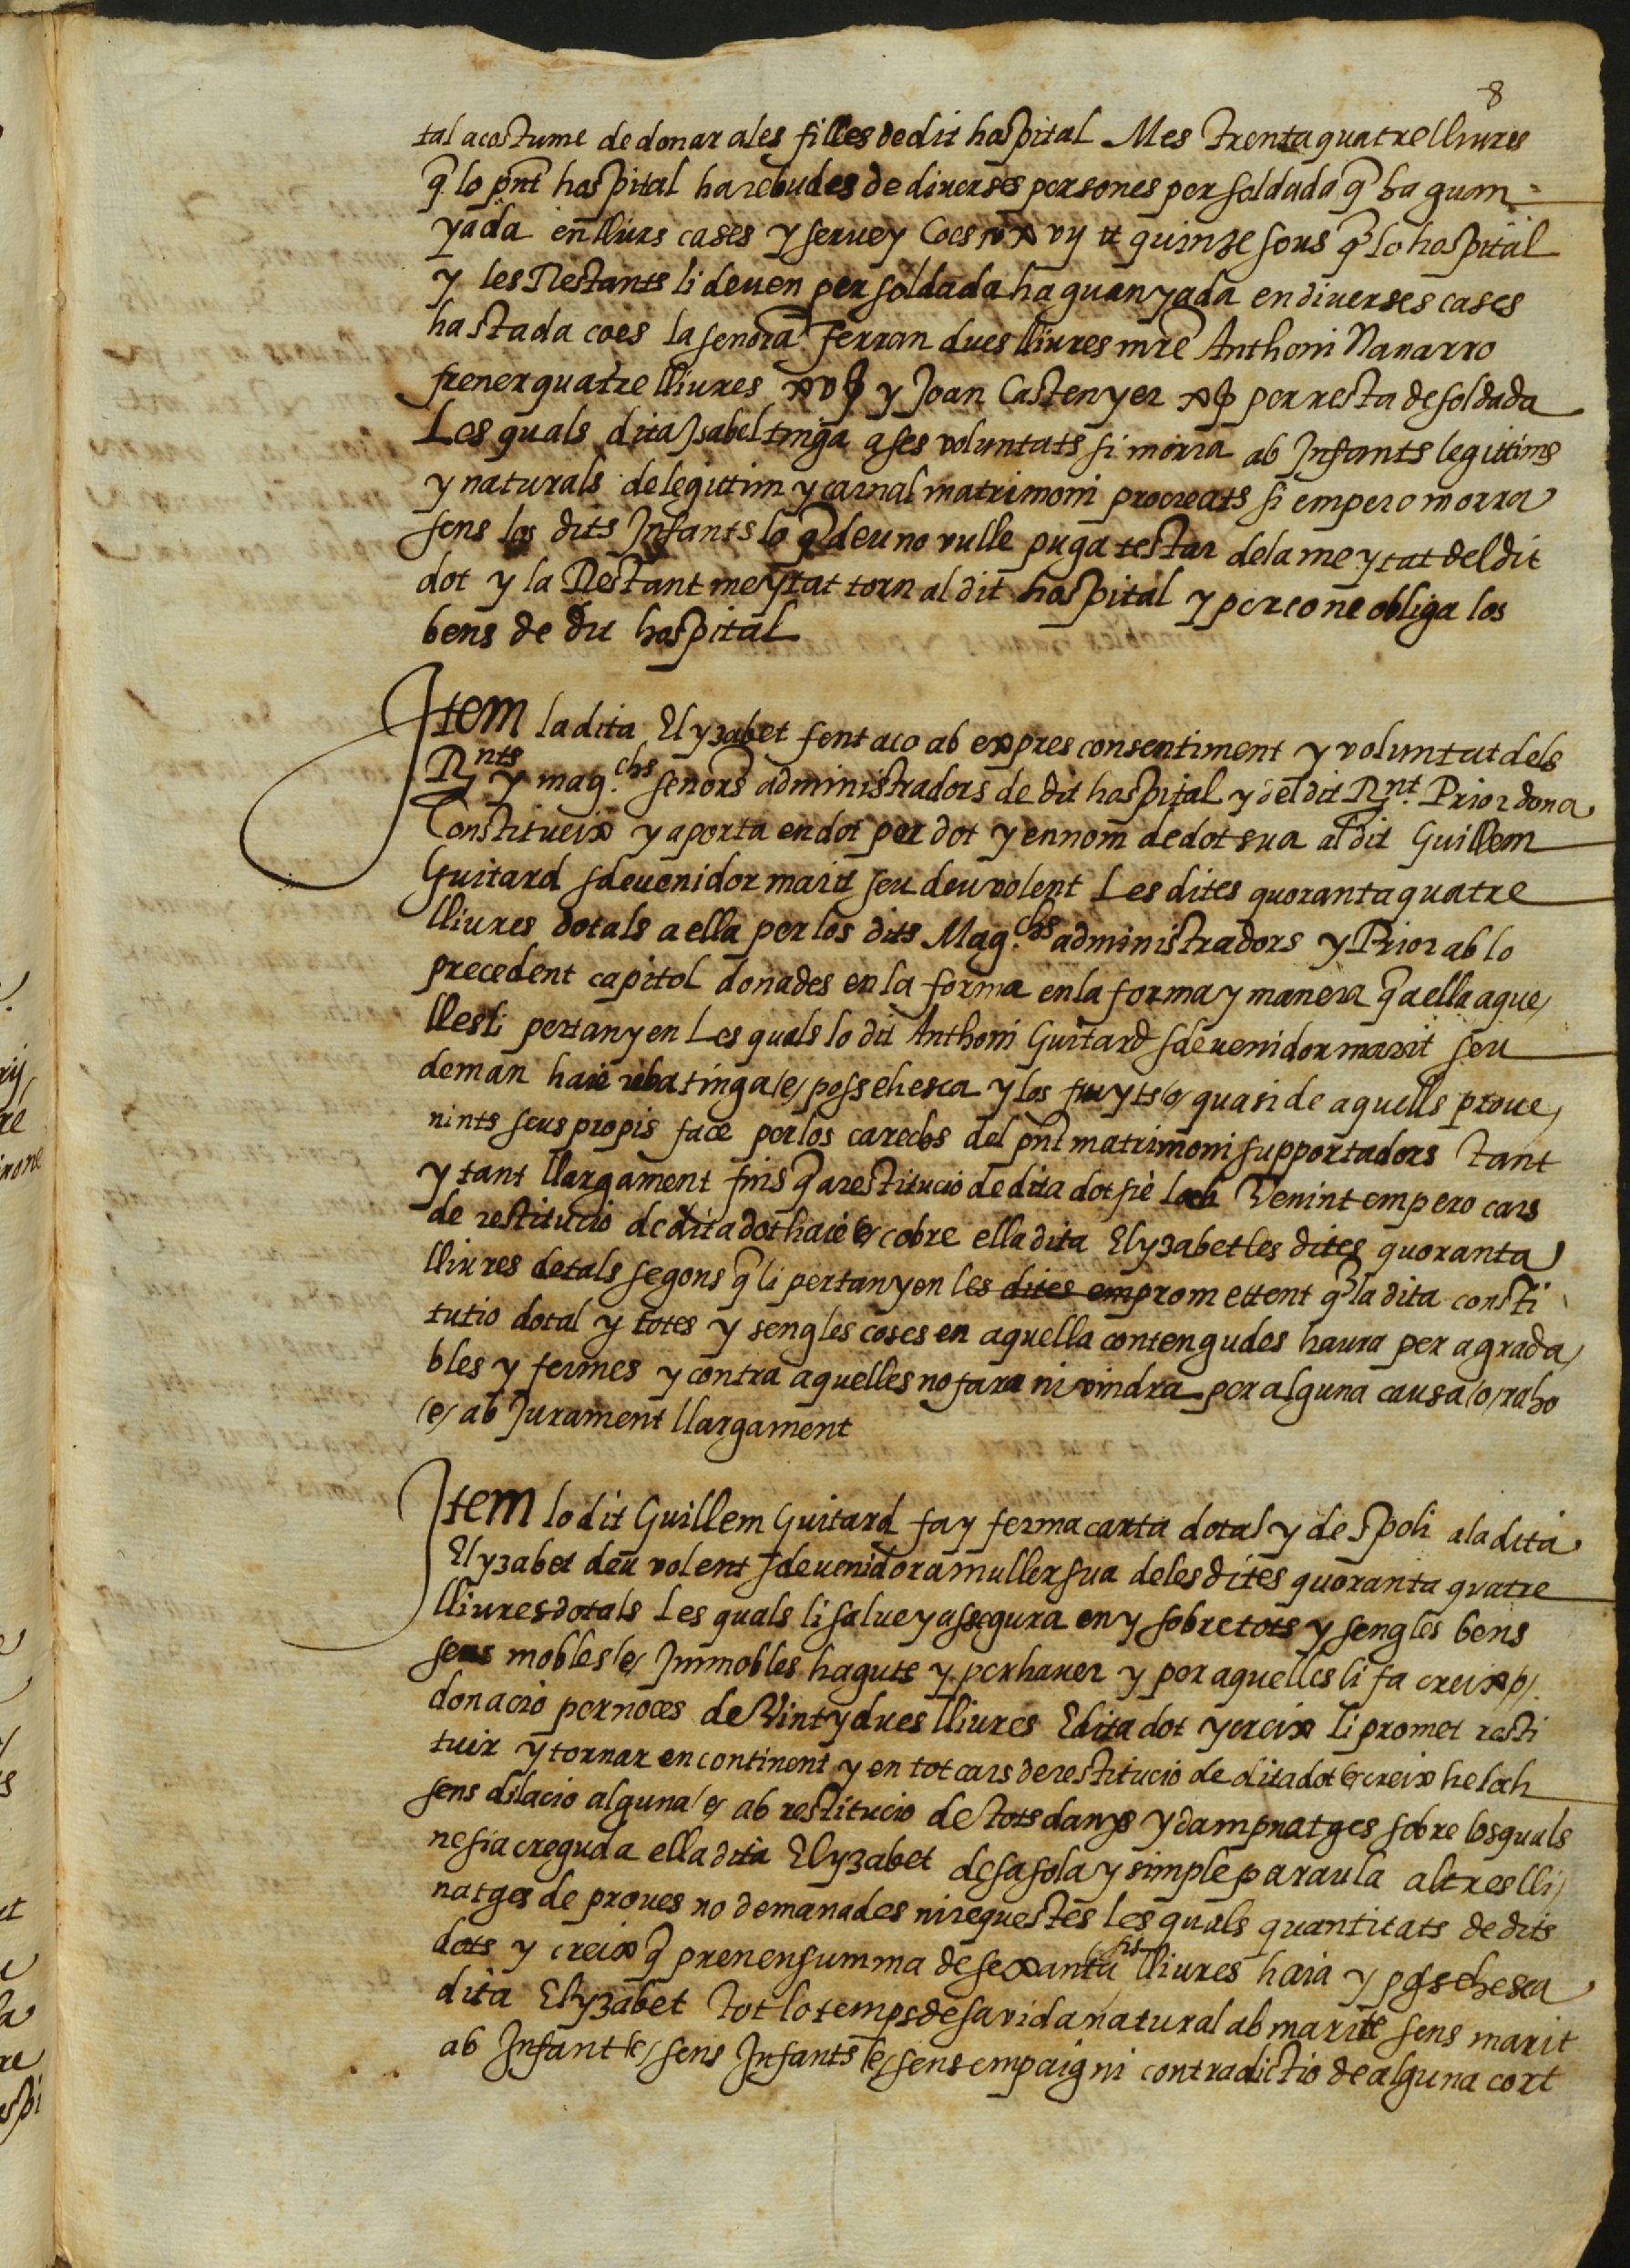 8
tal acostume de donar ales filles de dit hospital Mes trenta quatre lliures
q̃ lo pñt hospital ha rebudes de diverses persones per soldada q̃ ha guan=
yada en llurs cases y servey Coes xxvij ℔ quinze sous q̃ lo hospital
y les Restants li deuen per soldada ha guanyada en diverses cases
hastada coes la senora Ferran dues lliures mrẽ Anthoni Navarro
frener quatre lliures xvβ y Joan Castenyer xβ per resta de soldada
Les quals dita Isabel tinga a ses voluntats si morra ab Infants legittims
y naturals de legittim y carnal matrimoni procreats si empero morra
sens los dits Infants lo q̃ deu no vulle puga testar dela meytat del dit
dot y la Restant meytat torn al dit hospital y per ço ne obliga los
bens de dit hospital
Item la dita Elyzabet fent aço ab expres consentiment y voluntat dels
Rnts y mag.chs senors administradors de dit hospital y del dit Rnt. Prior dona
Constitueix y aporta en dot per dot y en nom de dot sua al dit Guillem
Guitard sdevenidor marit seu deu volent Les dites quoranta quatre
lliures dotals a ella per los dits Mag.chs administradors y Prior ab lo
precedent capitol donades en la forma en la forma y manera q̃ a ella aque/
lles li pertanyen Les quals lo dit Anthoni Guitard sdevenidor marit seu
deman haie reba tinga /e/ possehesca y los fruyts /o/ quasi de aquells prove/
nints seus propis face per los carechs del pñt matrimoni supportadors tant
y tant llargament fins q̃ a restitucio de dita dot sie loch Venint empero cars
de restitucio de dita dot haie /e/ cobre ella dita Elyzabet les dites quoranta
lliures dotals segons q̃ li pertanyen les dites em promettent q̃ la dita consti
tutio dotal y totes y sengles coses en aquella contengudes haura per agrada/
bles y fermes y contra aquelles no fara ni vindra per alguna causa /o/ raho
/e/ ab Jurament llargament
Item lo dit Guillem Guitard fa y ferma carta dotal y de spoli ala dita
Elyzabet deu volent sdevenidora muller sua deles dites quoranta quatre
lliures dotals Les quals li salve y assegura en y sobre tots y sengles bens
seus mobles /e/ Immobles haguts y per haver y per aquelles li fa creix p/
donacio per noces de Vint y dues lliures E dita dot y creix li promet resti
tuir y tornar en continent y en tot cars de restitucio de dita dot /e/ creix he loch
sens dilacio alguna /e/ ab restitucio de tots danys y dampnatges sobre los quals
ne sia creguda ella dita Elyzabet de sa sola y simple paraula altres lli/
natges de proves no demanades ni requestes Les quals quantitats de dits
dots y creix q̃ prenen summa de sexanta sis lliures haia y possehesca
dita Elyzabet tot lo temps de sa vida natural ab marit /e/ sens marit
ab Infant /e/ sens Infants /e/ sens empaig ni contradictio de alguna cort